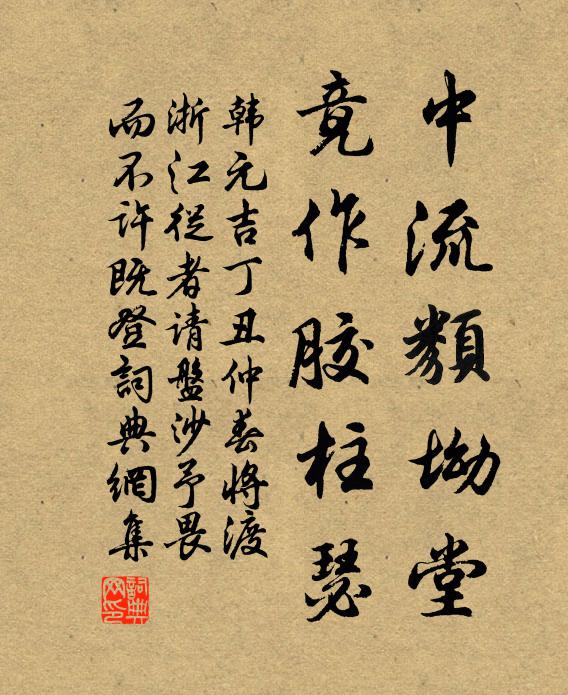 中流類坳堂
竟作膠柱瑟
韩元吉丁丑仲春將渡
浙江從者请盤沙予畏
而不许既登詞典網集
詞典网印